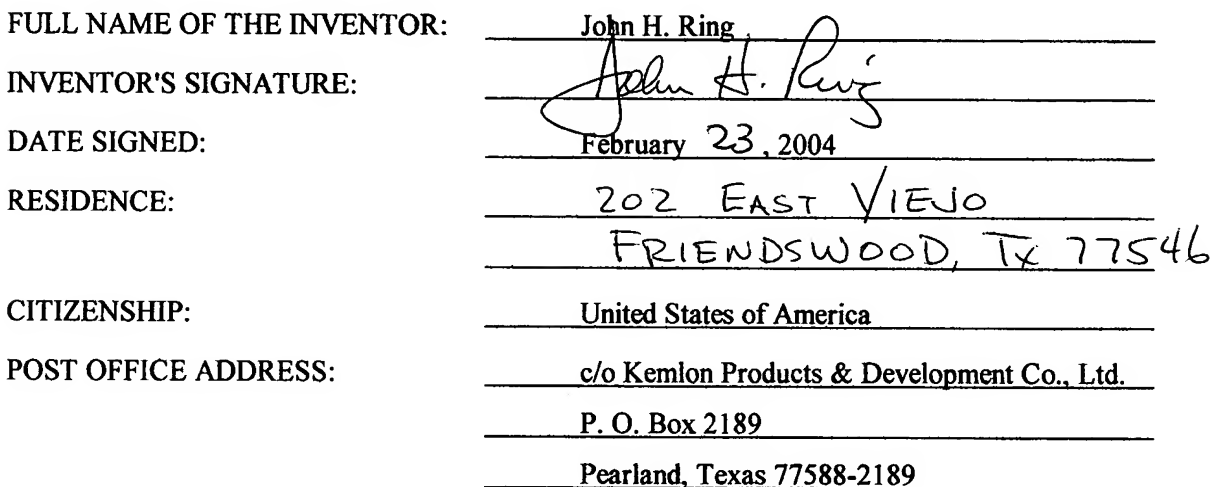 FULL NAME OF THE INVENTOR: John H. Ring
INVENTOR'S SIGNATURE: John H. Ring
DATE SIGNED: February 23, 2004
RESIDENCE: 202 EAST VIEJO
FRIENDSWOOD, TX 77546
CITIZENSHIP: United States of America
POST OFFICE ADDRESS: c/o Kemlon Products & Development Co., Ltd.
P. O. Box 2189
Pearland, Texas 77588-2189